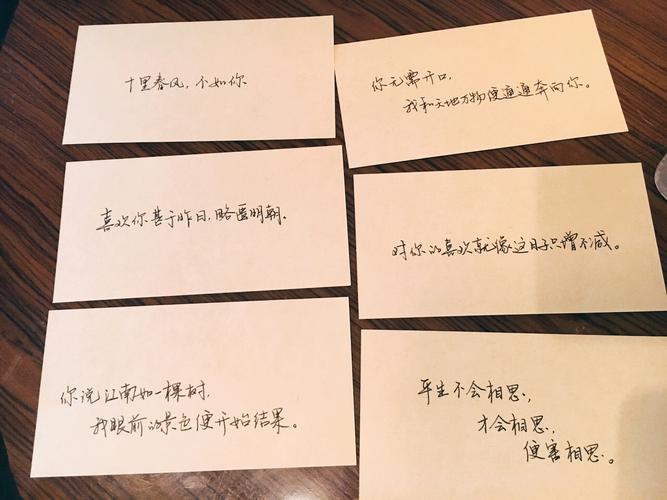 十里春风，不如你.
你无需开口，
我和天地万物便通通奔向你。
喜欢你甚于昨日，略匿明朝.
对你的喜欢就像这日子只增不减。
你说江南如一棵树，
我眼前的景色便开始结果。
平生不会相思，
才会相思，
便害相思。